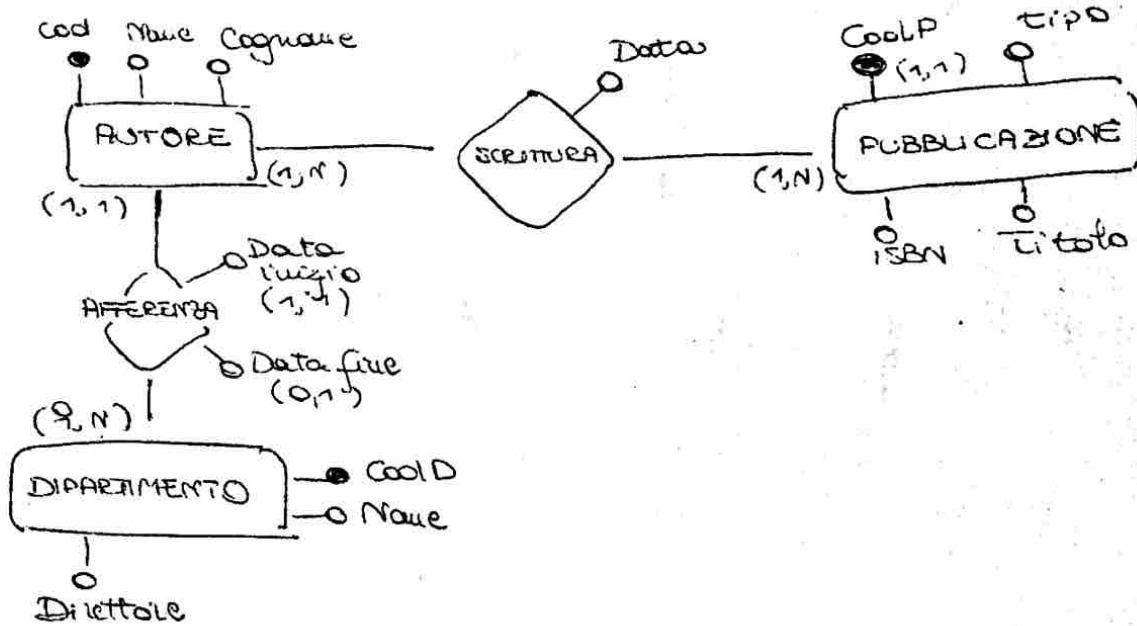 Cod Nome Cognome
AUTORE
(1,N)
(1,1)
Data
SCRITTURA
CodP
(1,1)
tipo
PUBBLICAZIONE
(1,N)
ISBN
Titolo
AFFERENZA
Data
inizio
(1,1)
Data fine
(0,1)
DIPARTIMENTO
CodD
Nome
Direttore